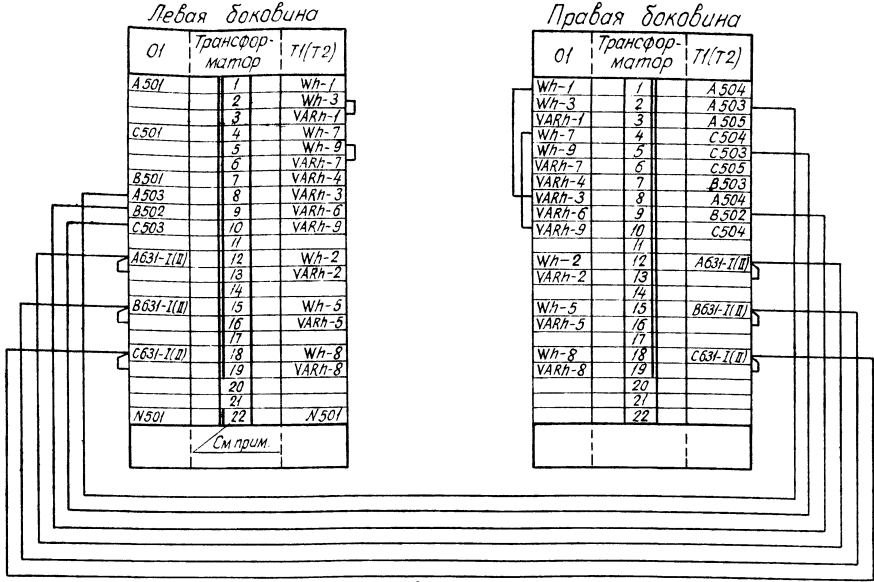 Левая боковина
01 Трансфор- матор Т1(Т2)
А501 1 Wh-1
2 Wh-3
3 VARh-1
С501 4 Wh-7
5 Wh-9
6 VARh-7
В501 7 VARh-4
А503 8 VARh-3
В502 9 VARh-6
С503 10 VARh-9
11
А631-I(II) 12 Wh-2
13 VARh-2
14
В631-I(II) 15 Wh-5
16 VARh-5
17
С631-I(II) 18 Wh-8
19 VARh-8
20
21
N501 22 N501
См прим.
Правая боковина
01 Трансфор- матор Т1(Т2)
Wh-1 1 А504
Wh-3 2 А503
VARh-1 3 А505
Wh-7 4 С504
Wh-9 5 С503
VARh-7 6 С505
VARh-4 7 В503
VARh-3 8 А504
VARh-6 9 В502
VARh-9 10 С504
11
Wh-2 12 А631-I(II)
VARh-2 13
14
Wh-5 15 В631-I(II)
VARh-5 16
17
Wh-8 18 С631-I(II)
VARh-8 19
20
21
22